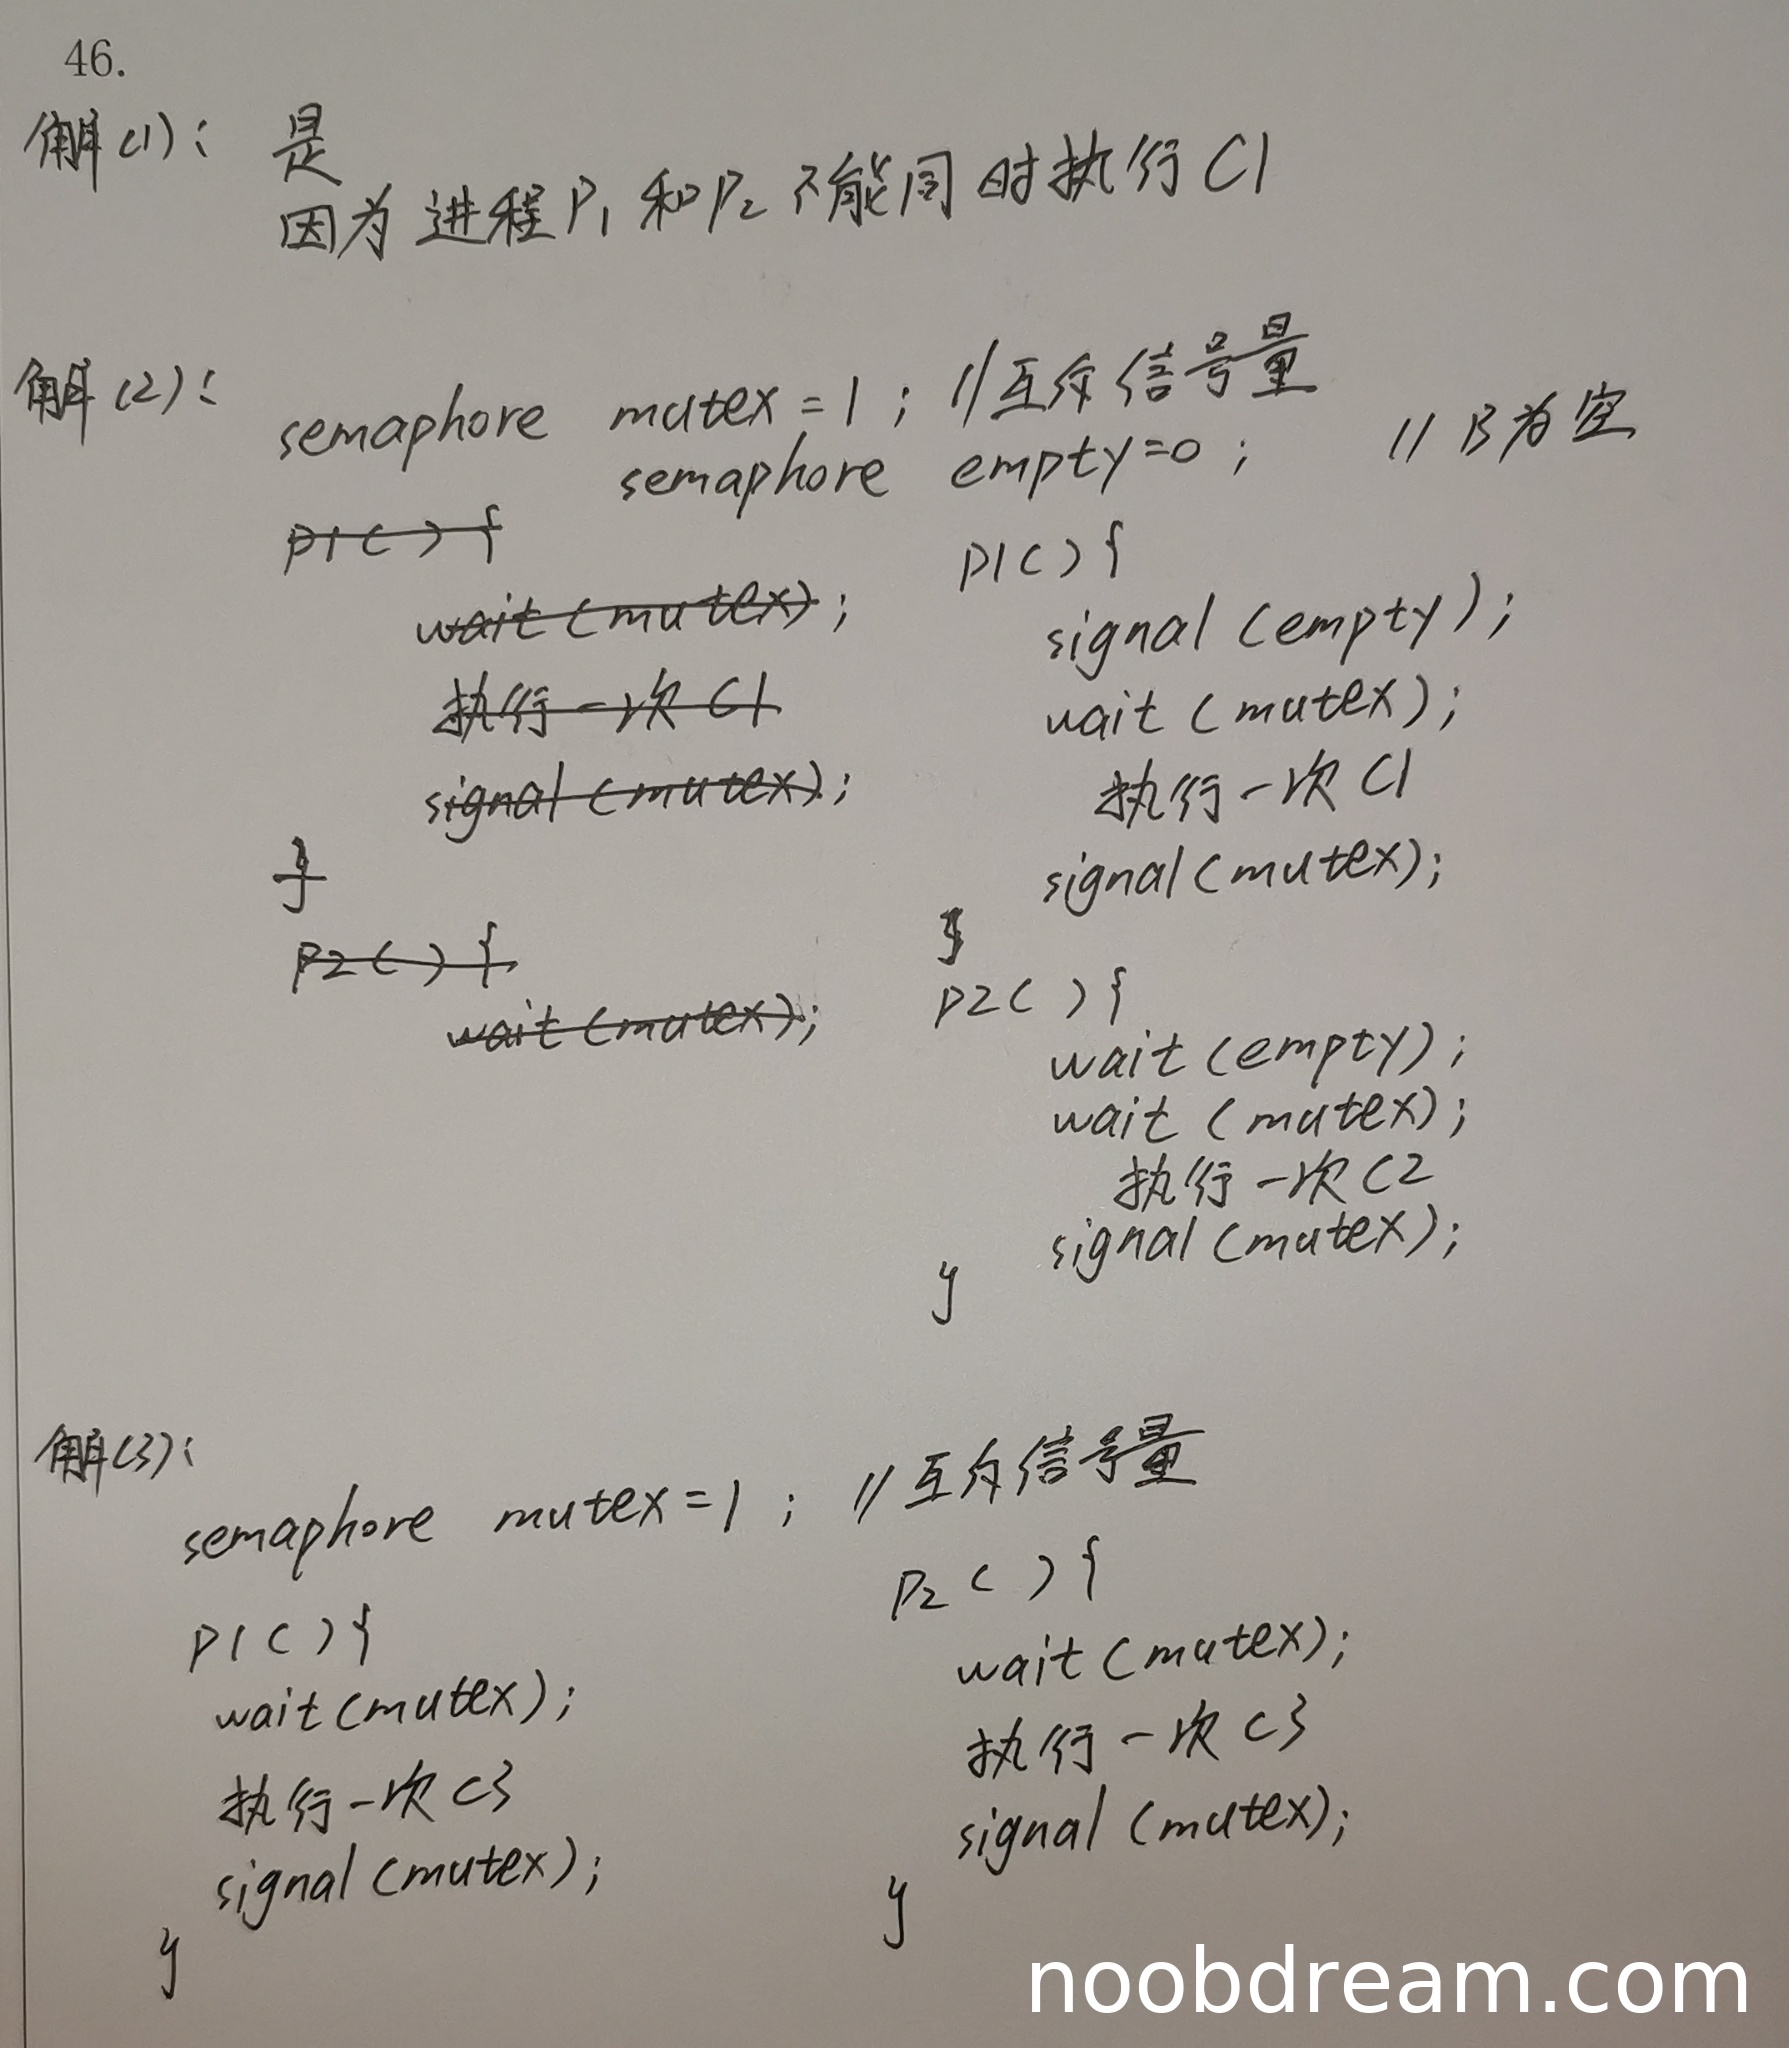 46.
解(1)： 是
因为进程P1和P2不能同时执行C1
解(2)：
semaphore mutex=1; //互斥信号量
semaphore empty=0; //B为空
P1(){
wait(mutex);
执行一次C1
signal(mutex);
}
P2(){
wait(mutex);
P1(){
signal(empty);
wait(mutex);
执行一次C1
signal(mutex);
}
P2(){
wait(empty);
wait(mutex);
执行一次C2
signal(mutex);
}
解(3)：
semaphore mutex=1; //互斥信号量
P1(){
wait(mutex);
执行一次C3
signal(mutex);
}
P2(){
wait(mutex);
执行一次C3
signal(mutex);
}
noobdream.com